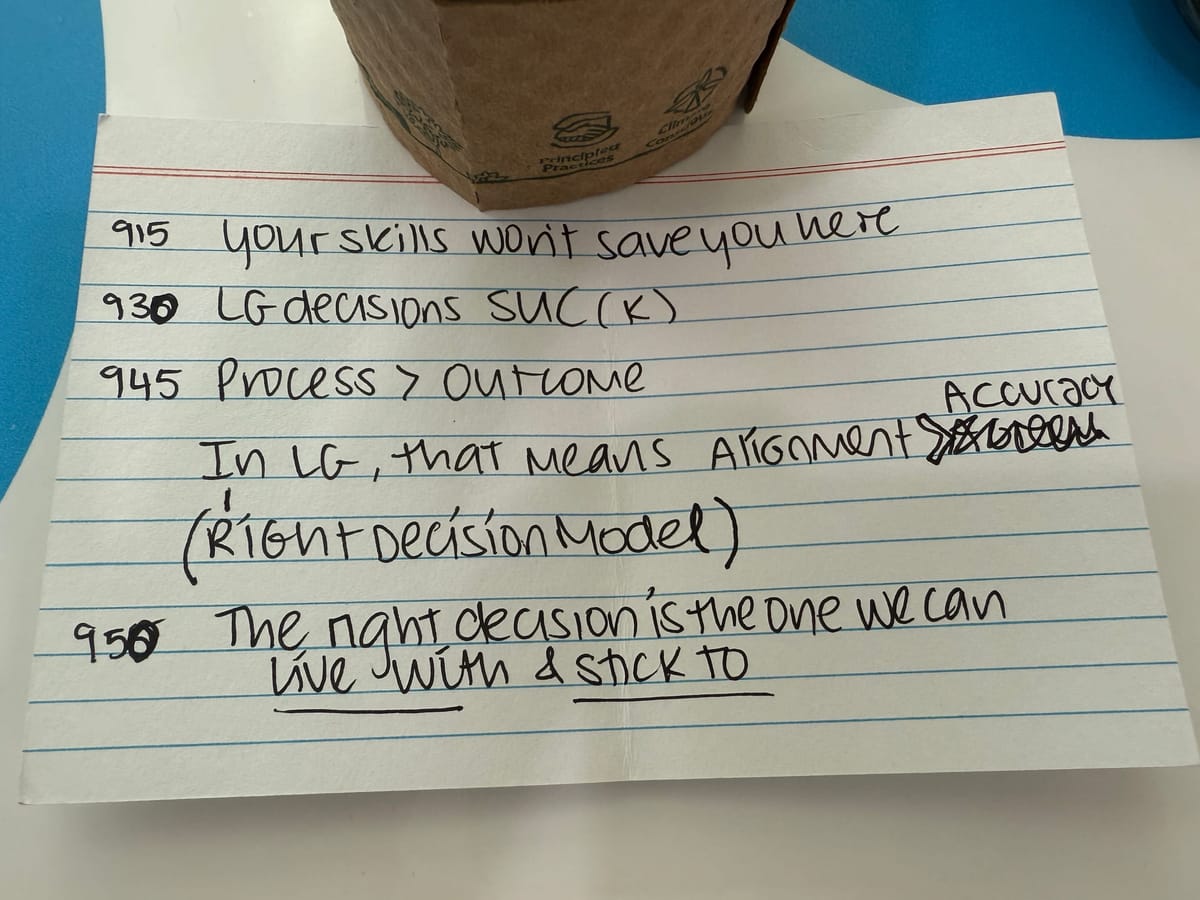 Principled
Practices
Climate
Conscious
915 your skills won't save you here
930 LG decisions SUC(K)
945 Process > outcome
Accuracy
In LG, that means Alignment >
(Right Decision Model)
950 The right decision is the one we can
live with & stick to